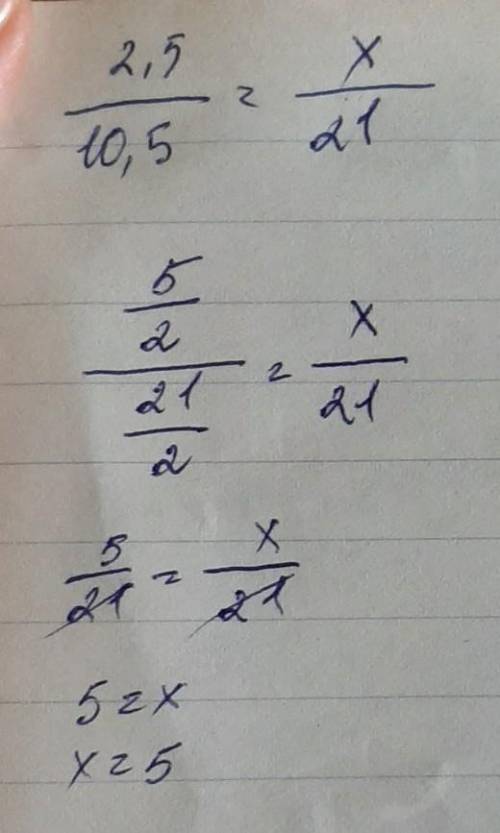 2,5/10,5 = x/21
(5/2)/(21/2) = x/21
5/21 = x/21
5 = x
x = 5